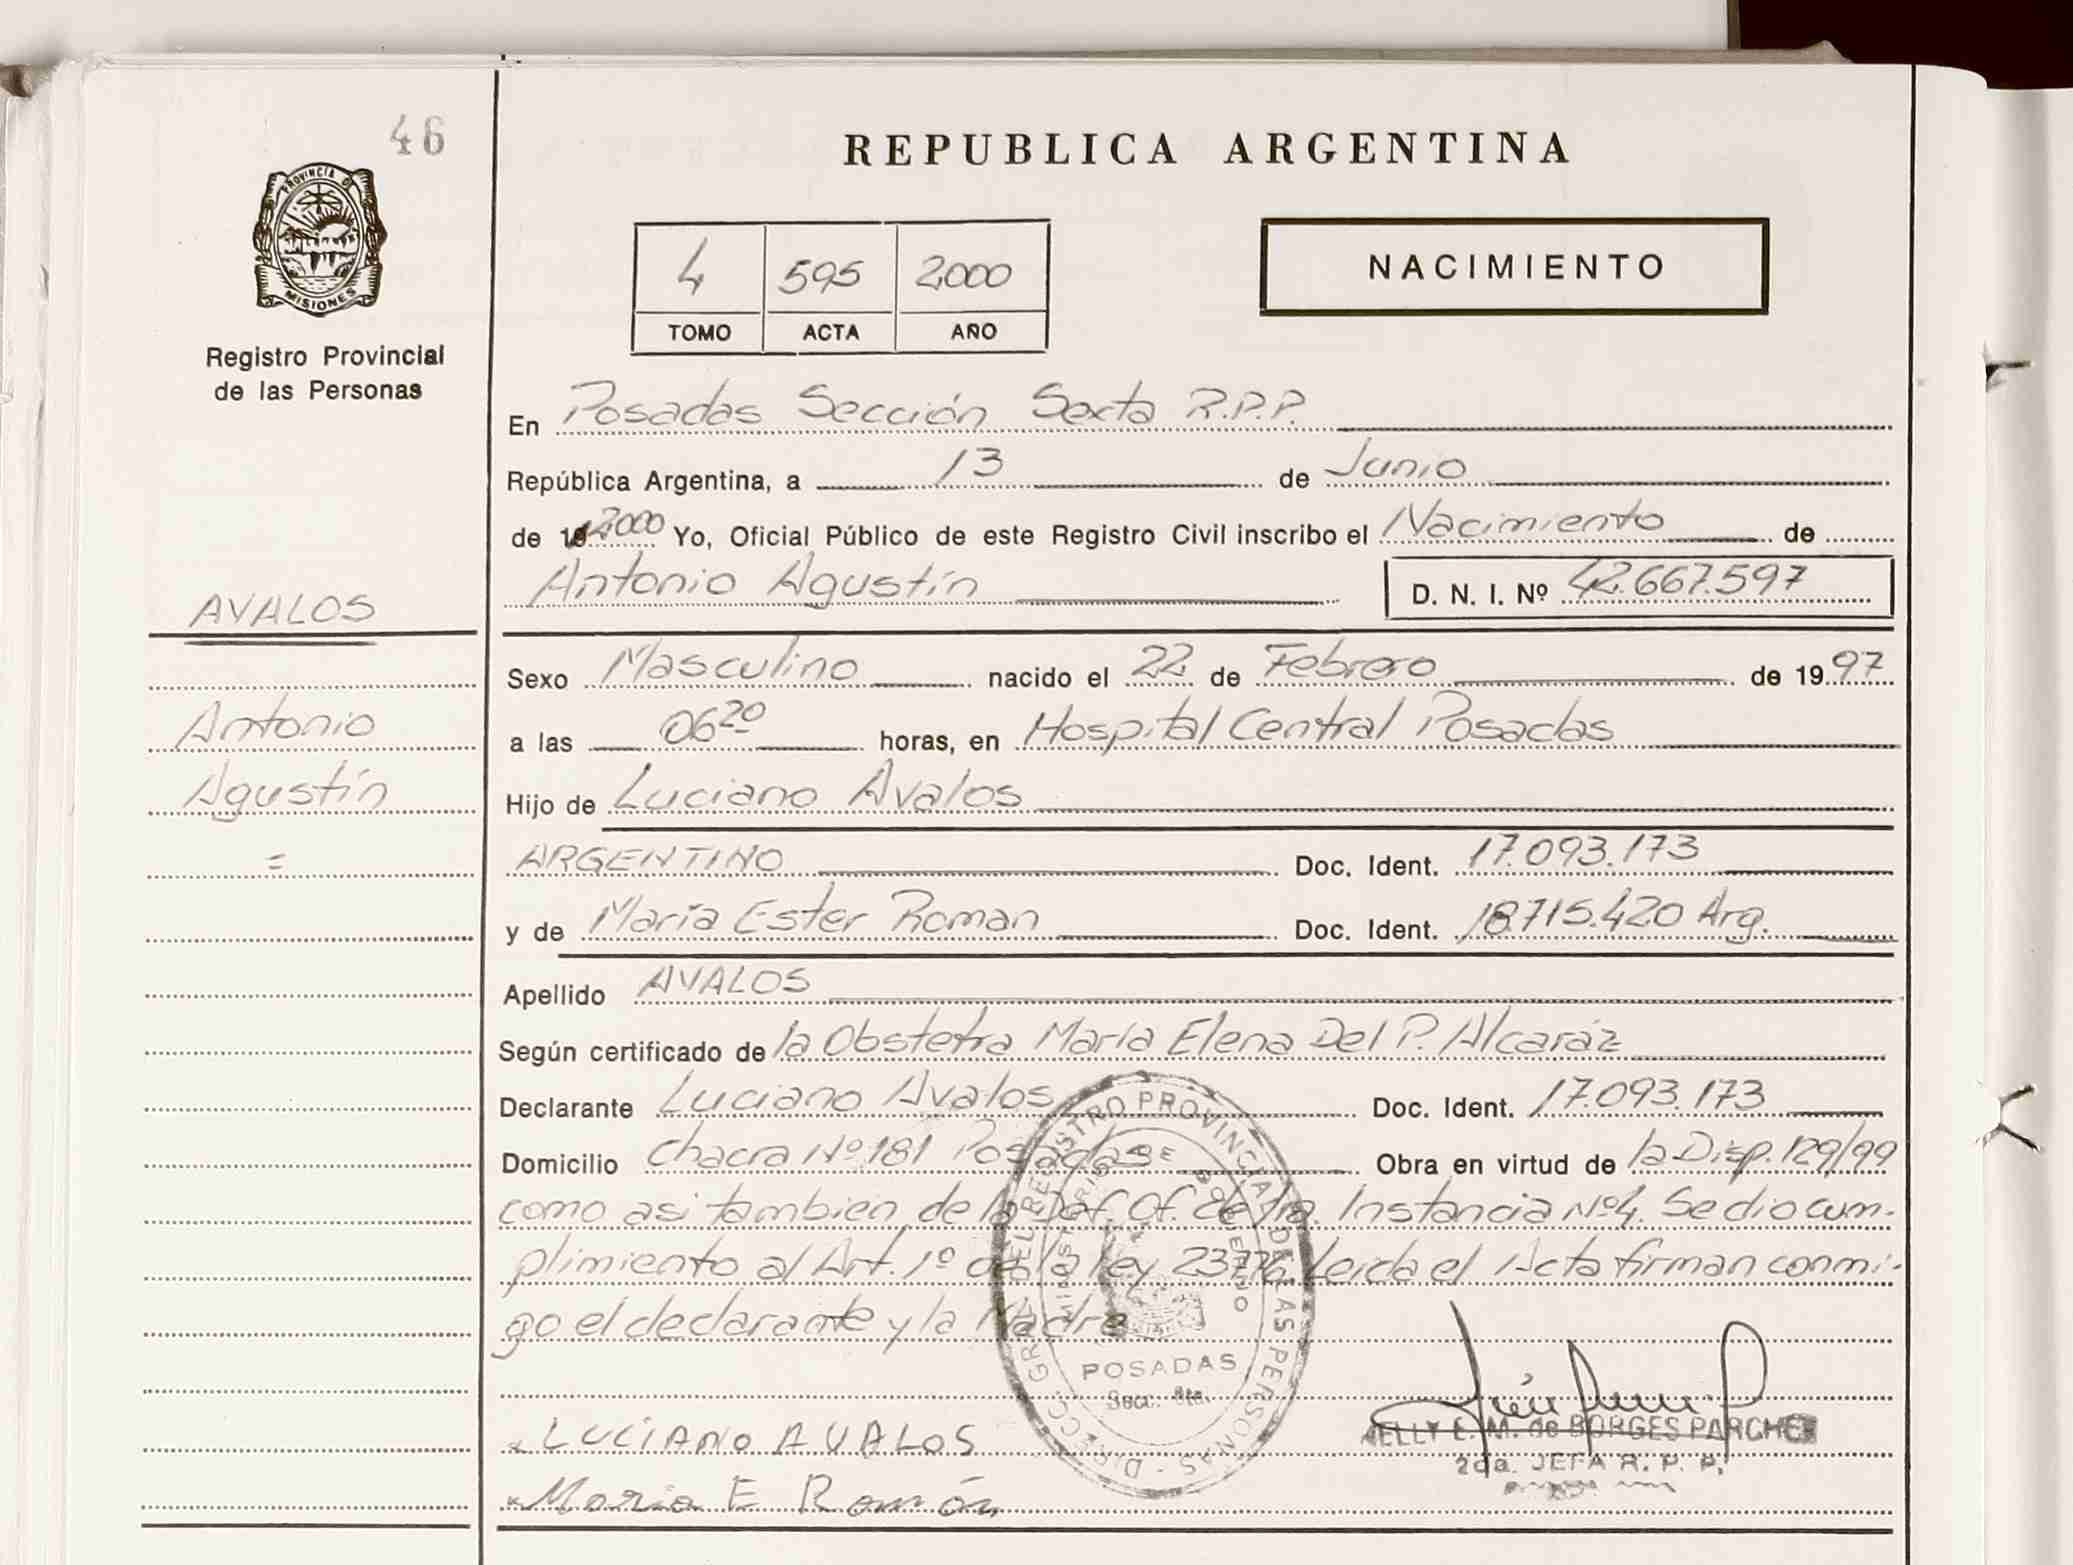 46
PROVINCIA DE
MISIONES
Registro Provincial
de las Personas
AVALOS
Antonio
Agustín
=
REPUBLICA ARGENTINA
4 595 2000
TOMO ACTA AÑO
NACIMIENTO
En Posadas Sección Sexta R.P.P.
República Argentina, a 13 de Junio
de 19 2000 Yo, Oficial Público de este Registro Civil inscribo el Nacimiento de
Antonio Agustín D. N. I. Nº 42.667.597
Sexo Masculino nacido el 22 de Febrero de 1997
a las 06 20 horas, en Hospital Central Posadas
Hijo de Luciano Avalos
ARGENTINO Doc. Ident. 17.093.173
y de María Ester Roman Doc. Ident. 18.715.420 Arg.
Apellido AVALOS
Según certificado de la Obstetra María Elena Del P. Alcaráz
Declarante Luciano Avalos Doc. Ident. 17.093.173
Domicilio Chacra Nº 181 Posadas Obra en virtud de la Disp. 129/99
como asi tambien de la Def. Of. de 1ra. Instancia Nº4. Se dio cum-
plimiento al Art. 1º de la ley 23776 Leida el Acta firman conmi-
go el declarante y la Madre
DIRECC. GRAL. DEL REGISTRO PROVINCIAL DE LAS PERSONAS
MINISTERIO DE GOBIERNO
POSADAS
Secc. 6ta.
LUCIANO AVALOS
Maria E Román
NELLY E. M. de BORGES PARCHEN
2da. JEFA R. P. P.